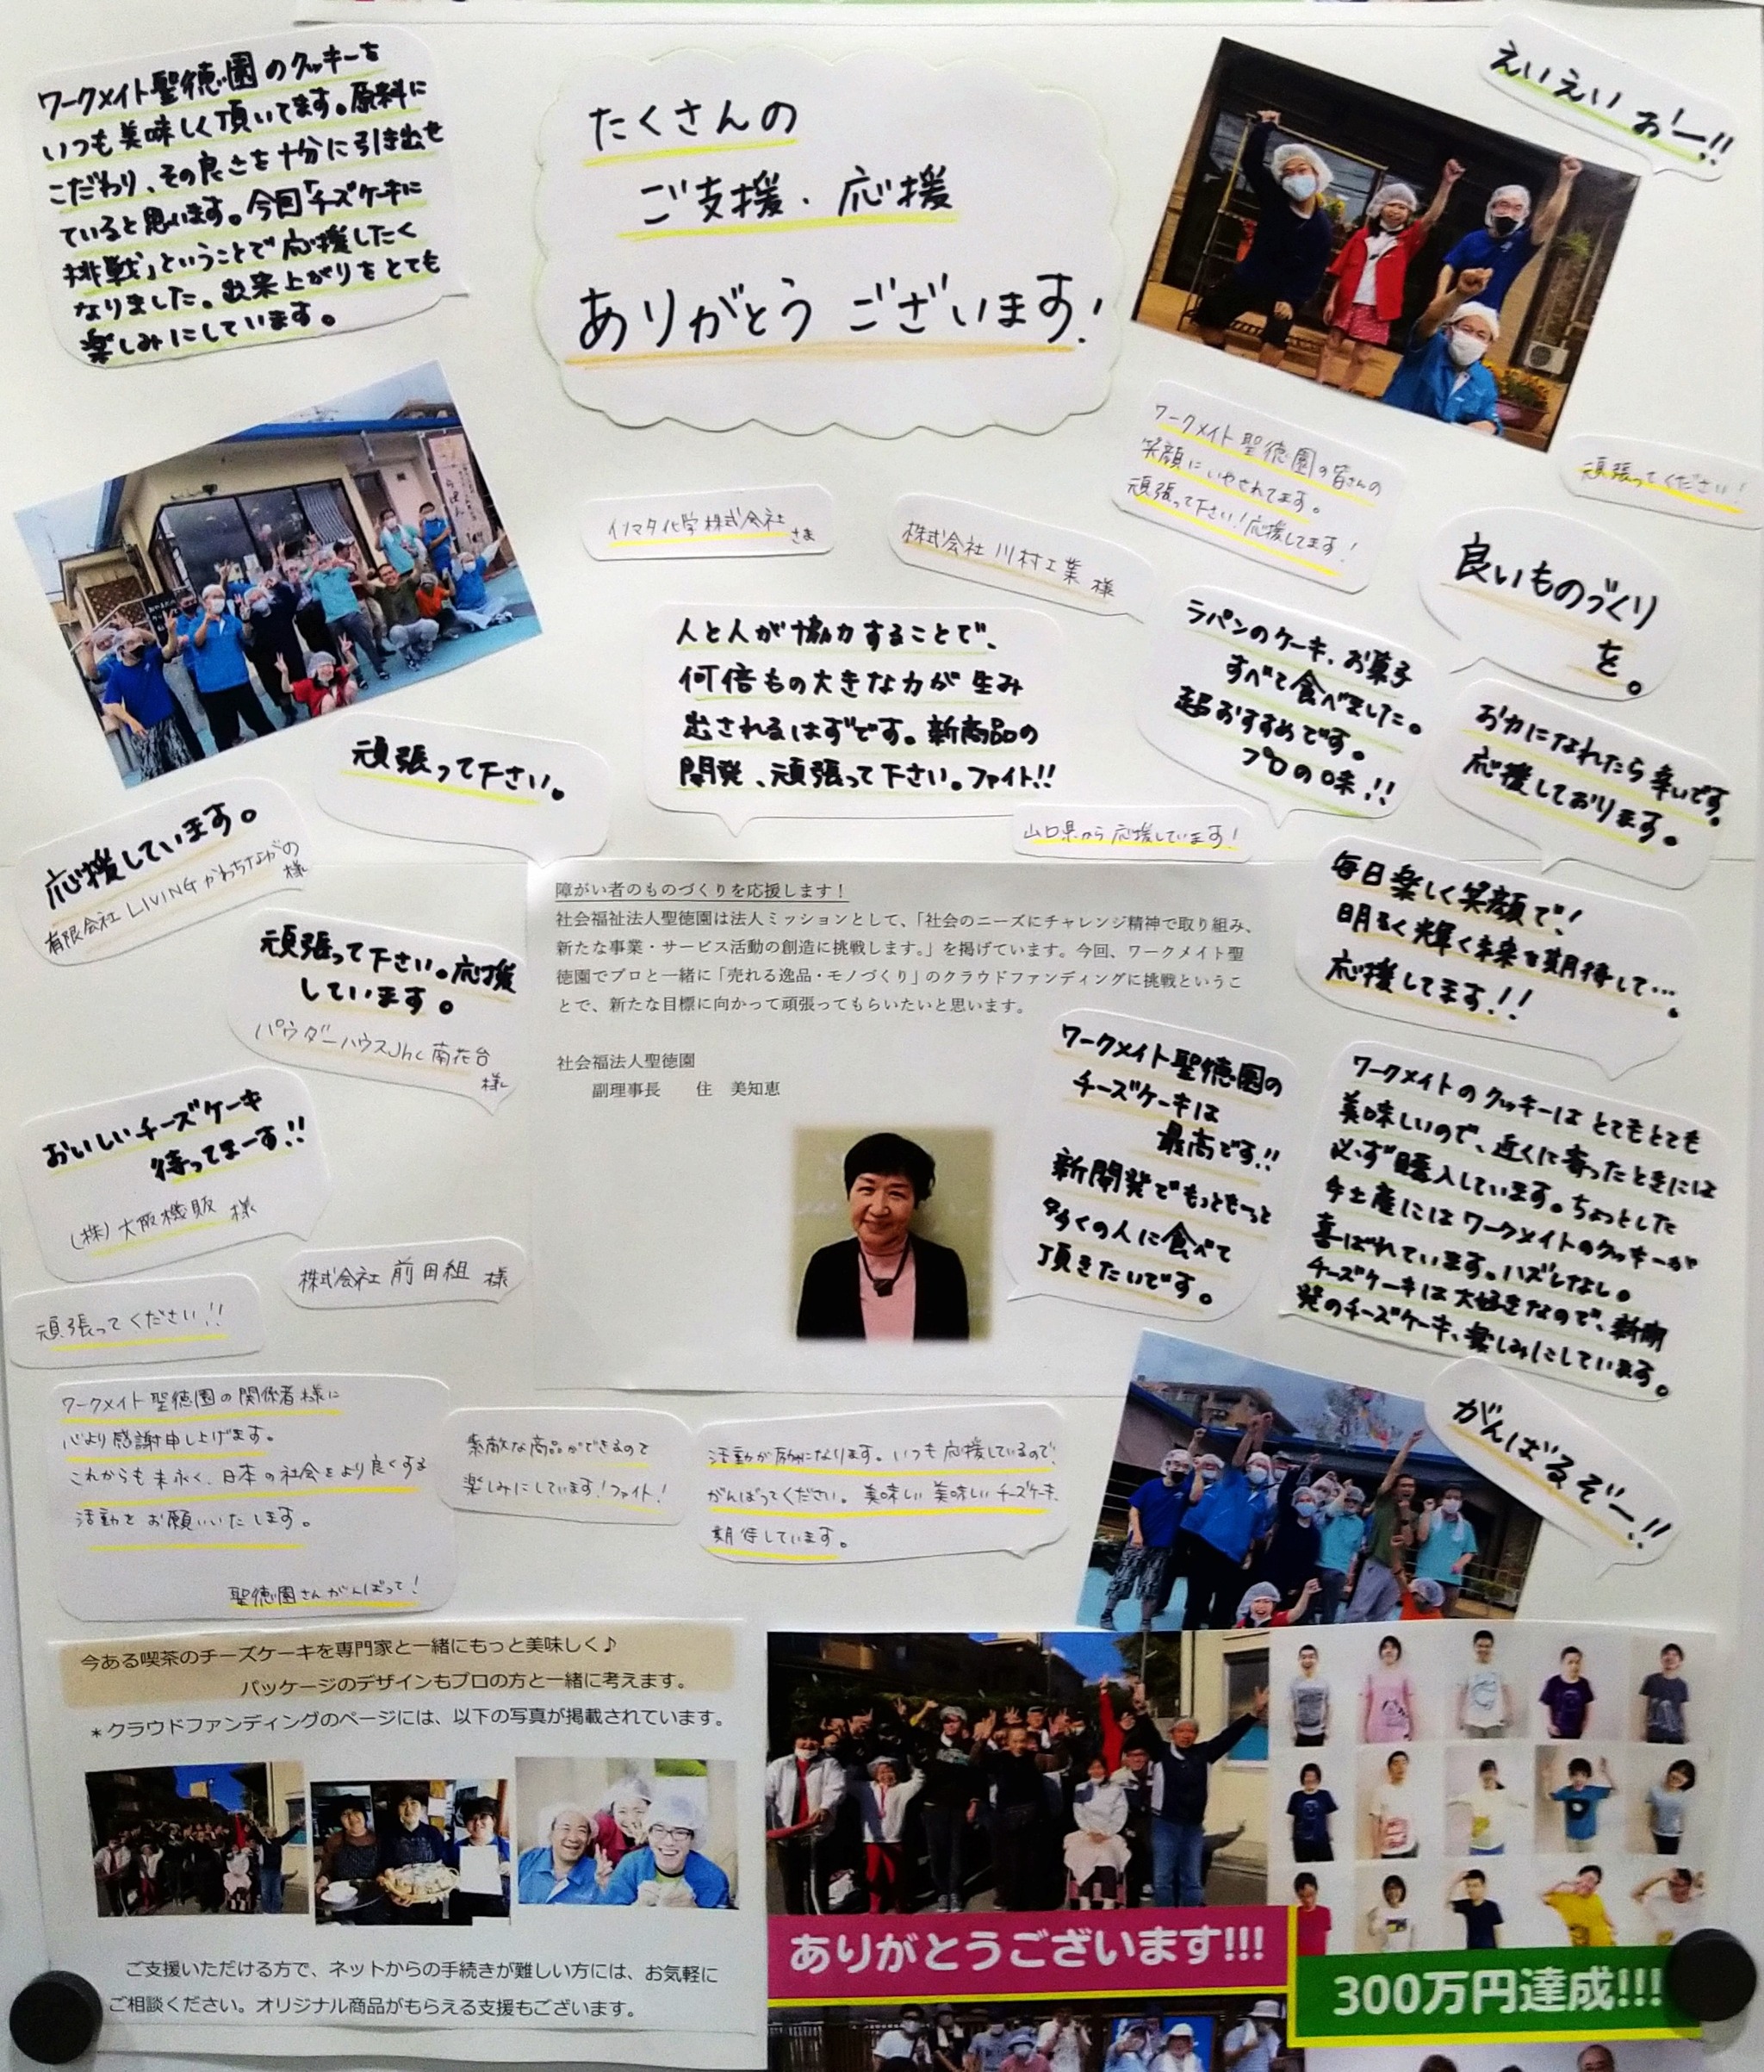 ワークメイト聖徳園のクッキーを
いつも美味しく頂いてます。原料に
こだわり、その良さを十分に引き出せ
ていると思います。今回「チーズケーキに
挑戦」ということで応援したく
なりました。出来上がりをとても
楽しみにしています。
たくさんの
ご支援、応援
ありがとうございます!
えいえいおー!!
ワークメイト聖徳園の皆さんの
笑顔にいやされてます。
頑張って下さい!応援してます!
頑張ってください!
イノマタ化学株式会社
さま
株式会社川村工業 様
良いものづくり
を。
人と人が協力することで、
何倍もの大きな力が生み
出されるはずです。新商品の
開発、頑張って下さい。ファイト!!
ラパンのケーキ、お菓子
すべて食べました。
超おすすめです。
プロの味!!
お力になれたら幸いです。
応援しております。
頑張って下さい。
山口県から応援しています!
応援しています。
有限会社LIVINGかわちながの
様
頑張って下さい。応援
しています。
パウダーハウスJhc南花台
様
障がい者のものづくりを応援します!
社会福祉法人聖徳園は法人ミッションとして、「社会のニーズにチャレンジ精神で取り組み、
新たな事業・サービス活動の創造に挑戦します。」を掲げています。今回、ワークメイト聖
徳園でプロと一緒に「売れる逸品・モノづくり」のクラウドファンディングに挑戦というこ
とで、新たな目標に向かって頑張ってもらいたいと思います。
社会福祉法人聖徳園
副理事長 住 美知恵
毎日楽しく笑顔で!
明るく輝く未来を期待して…
応援してます!!
ワークメイト聖徳園の
チーズケーキは
最高です!!
新開発でもっともーっと
多くの人に食べて
頂きたいです。
ワークメイトのクッキーはとてもとても
美味しいので、近くに寄ったときには
必ず購入しています。ちょっとした
手土産にはワークメイトのクッキーが
喜ばれています。ハズレなし。
チーズケーキは大好きなので、新開
発のチーズケーキ、楽しみにしています。
おいしいチーズケーキ
待ってまーす!!
(株)大阪機販 様
株式会社 前田組 様
頑張ってください!!
ワークメイト聖徳園の関係者様に
心より感謝申し上げます。
これからも末永く、日本の社会をより良くする
活動をお願いいたします。
聖徳園さんがんばって!
素敵な商品ができるので
楽しみにしています!ファイト!
活動が励みになります。いつも応援しているので、
がんばってください。美味しい美味しいチーズケーキ、
期待しています。
がんばるぞー!!
今ある喫茶のチーズケーキを専門家と一緒にもっと美味しく♪
パッケージのデザインもプロの方と一緒に考えます。
*クラウドファンディングのページには、以下の写真が掲載されています。
ご支援いただける方で、ネットからの手続きが難しい方には、お気軽に
ご相談ください。オリジナル商品がもらえる支援もございます。
ありがとうございます!!!
300万円達成!!!